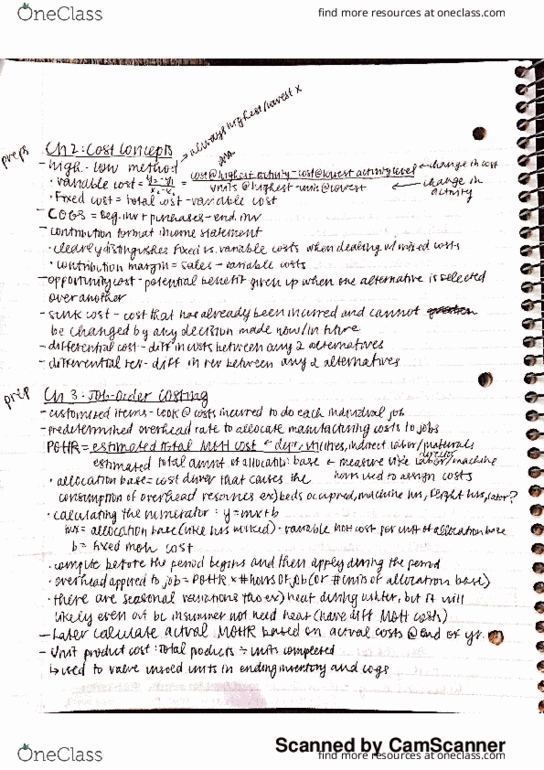 OneClass
find more resources at oneclass.com
preps
Ch 2: Cost Concepts → always highest/lowest x
- high-low method
• variable cost = y₂-y₁/x₂-x₁ = cost @ highest activity - cost @ lowest activity level ← change in cost
units @ highest - units @ lowest ← change in activity
• Fixed cost = total cost - variable cost
- COGS = beg. inv + purchases - end. inv
- contribution format income statement
• clearly distinguishes fixed vs. variable costs when dealing w/ mixed costs
• contribution margin = sales - variable costs
- opportunity cost - potential benefit given up when one alternative is selected
over another
- sunk cost - cost that has already been incurred and cannot
be changed by any decision made now/in future
- differential cost - diff in costs between any 2 alternatives
- differential rev - diff in rev between any 2 alternatives
prep
Ch 3: Job-Order Costing
- customized items - look @ costs incurred to do each individual job
- predetermined overhead rate to allocate manufacturing costs to jobs
POHR = estimated total MOH cost ← depr, utilities, indirect labor/materials
estimated total amnt of allocatn. base ← measure like direct labor/machine
• allocation base = cost driver that causes the hours used to assign costs
consumption of overhead resources ex) beds occupied, machine hrs, flight hrs, labor?
• calculating the numerator: y = mx + b
mx = allocation base (like hrs worked) · variable MOH cost per unit of allocation base
b = fixed moh cost
• compute before the period begins and then apply during the period
• overhead applied to job = POHR x # hours of job (or # units of allocation base)
• there are seasonal variations tho ex) heat during winter, but it will
likely even out bc in summer not need heat (have diff MOH costs)
- Later calculate actual MOHR based on actual costs @ end of yr.
- Unit product cost: total products ÷ units completed
↳ used to value unsold units in ending inventory and cogs
Scanned by CamScanner
OneClass
find more resources at oneclass.com